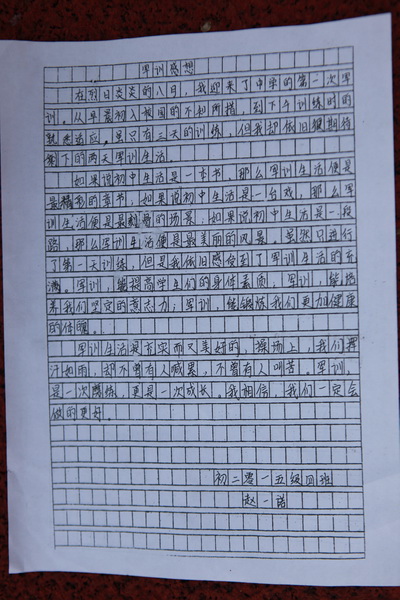 军训感想
在烈日炎炎的八月,我迎来了中学的第一次军
训。从早晨初入校园的不知所措,到下午训练时的
熟悉适应。虽只有三天的训练,但我却依旧很期待
剩下的两天军训生活。
如果说初中生活是一本书,那么军训生活便是
最精彩的章节;如果说初中生活是一台戏,那么军
训生活便是最的场景;如果说初中生活是一段
路,那么军训生活便是最美丽的风景。虽然只进行
了第一天训练,但是我依旧感受到了军训生活的充
满。军训,能提高学生们的身体素质,军训,能培
养我们坚定的意志力;军训,能锻炼我们更加健康
的体魄。
军训生活是充实而又美好的,操场上,我们挥
汗如雨,却不曾有人喊累,不曾有人叫苦。军训,
是一次磨练,更是一次成长。我相信,我们一定会
做的更好。
初二零一五级四班
赵一诺